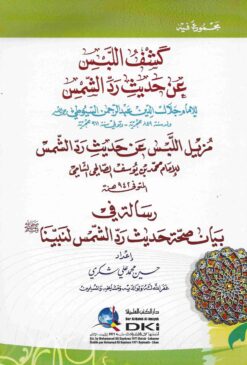 مجموعة فيه
كشف اللبس
عن حديث رد الشمس
للإمام جلال الدين عبد الرحمن السيوطي
مزيل اللبس عن حديث رد الشمس
للإمام محمد بن يوسف الصالحي الشامي
المتوفى ٩٤٢ هـ
رسالة في
بيان صحة حديث رد الشمس لنبينا ﷺ
إعداد
حسين محمد علي شكري
دار الكتب العلمية
DKi